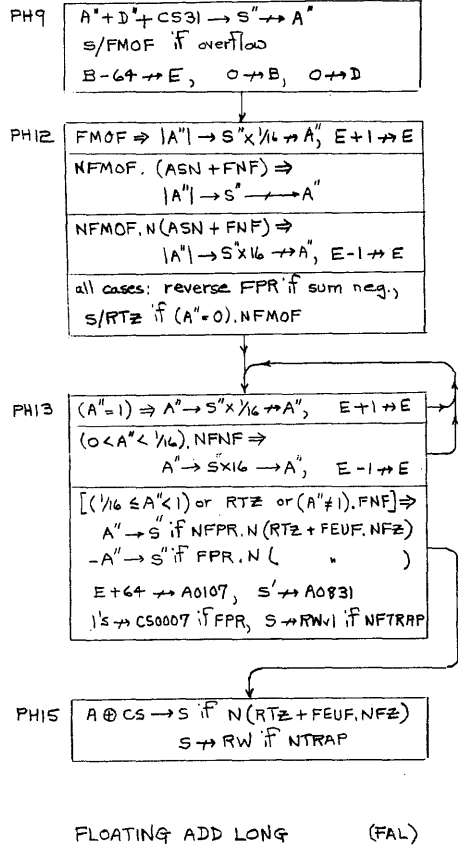 PH9
A"+D"+CS31 → S" ↛ A"
S/FMOF if overflow
B-64 ↛ E, 0 ↛ B, 0 ↛ D
PH12
FMOF ⇒ |A"| → S"×1/16 ↛ A", E+1 ↛ E
NFMOF. (ASN + FNF) ⇒
|A"| → S" ↛ A"
NFMOF. N(ASN + FNF) ⇒
|A"| → S"×16 ↛ A", E-1 ↛ E
all cases: reverse FPR if sum neg.,
S/RTZ if (A"=0).NFMOF
PH13
(A"=1) ⇒ A" → S"×1/16 ↛ A", E+1 ↛ E
(0<A"<1/16).NFNF ⇒
A" → S"×16 → A", E-1 ↛ E
[(1/16 ≤ A"<1) or RTZ or (A"≠1).FNF] ⇒
A" → S" if NFPR.N(RTZ + FEUF.NFZ)
-A" → S" if FPR.N( " )
E+64 ↛ A0107, S' ↛ A0831
1's ↛ CS0007 if FPR, S ↛ RWv1 if NFTRAP
PH15
A ⊕ CS → S if N(RTZ + FEUF.NFZ)
S ↛ RW if NTRAP
FLOATING ADD LONG (FAL)